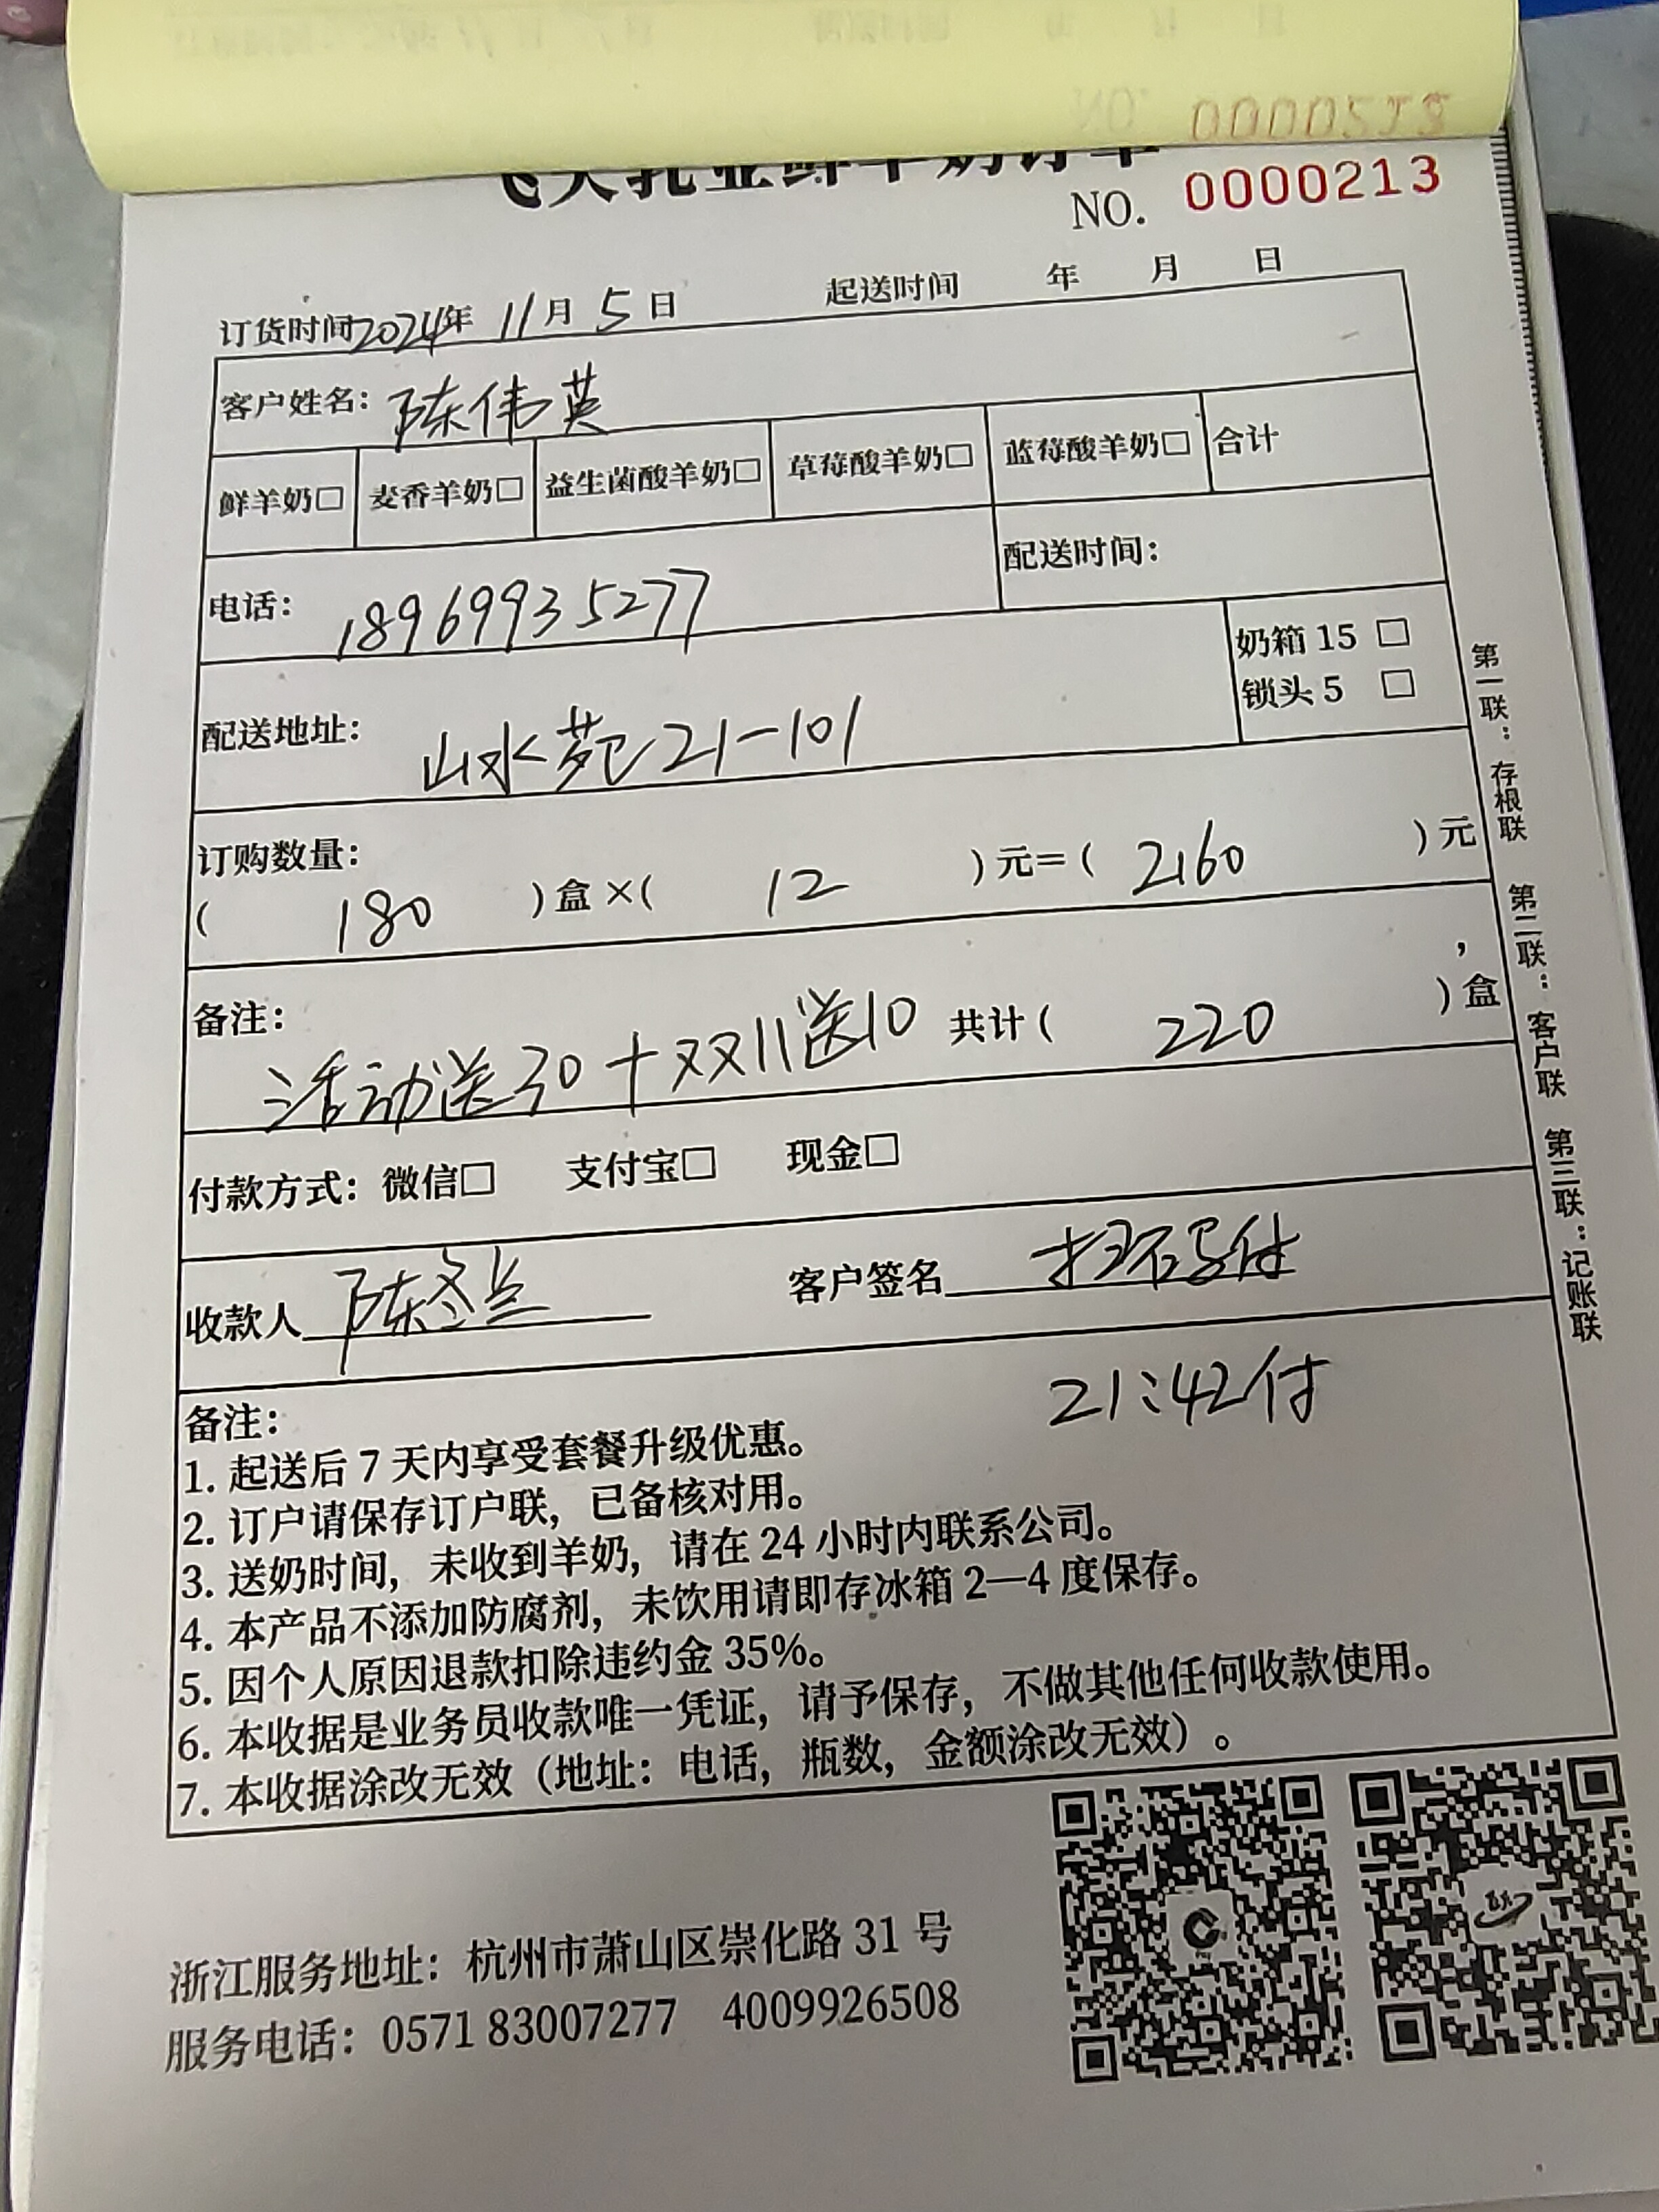 飞天乳业鲜羊奶订单
NO. 0000213
订货时间2024年 11月 5日 起送时间 年 月 日
客户姓名：陈伟英
鲜羊奶□ 麦香羊奶□ 益生菌酸羊奶□ 草莓酸羊奶□ 蓝莓酸羊奶□ 合计
电话：18969935277 配送时间：
配送地址：山水苑21-101
奶箱 15 □
锁头 5 □
订购数量：
( 180 )盒×( 12 )元=( 2160 )元
备注： ，
活动送30+双11送10 共计( 220 )盒
付款方式：微信□ 支付宝□ 现金□
收款人 陈冬兰 客户签名 扫码付
21:42付
备注：
1. 起送后 7 天内享受套餐升级优惠。
2. 订户请保存订户联，已备核对用。
3. 送奶时间，未收到羊奶，请在 24 小时内联系公司。
4. 本产品不添加防腐剂，未饮用请即存冰箱 2—4 度保存。
5. 因个人原因退款扣除违约金 35%。
6. 本收据是业务员收款唯一凭证，请予保存，不做其他任何收款使用。
7. 本收据涂改无效（地址：电话，瓶数，金额涂改无效）。
第一联：存根联 第二联：客户联 第三联：记账联
浙江服务地址：杭州市萧山区崇化路 31 号
服务电话：0571 83007277 4009926508